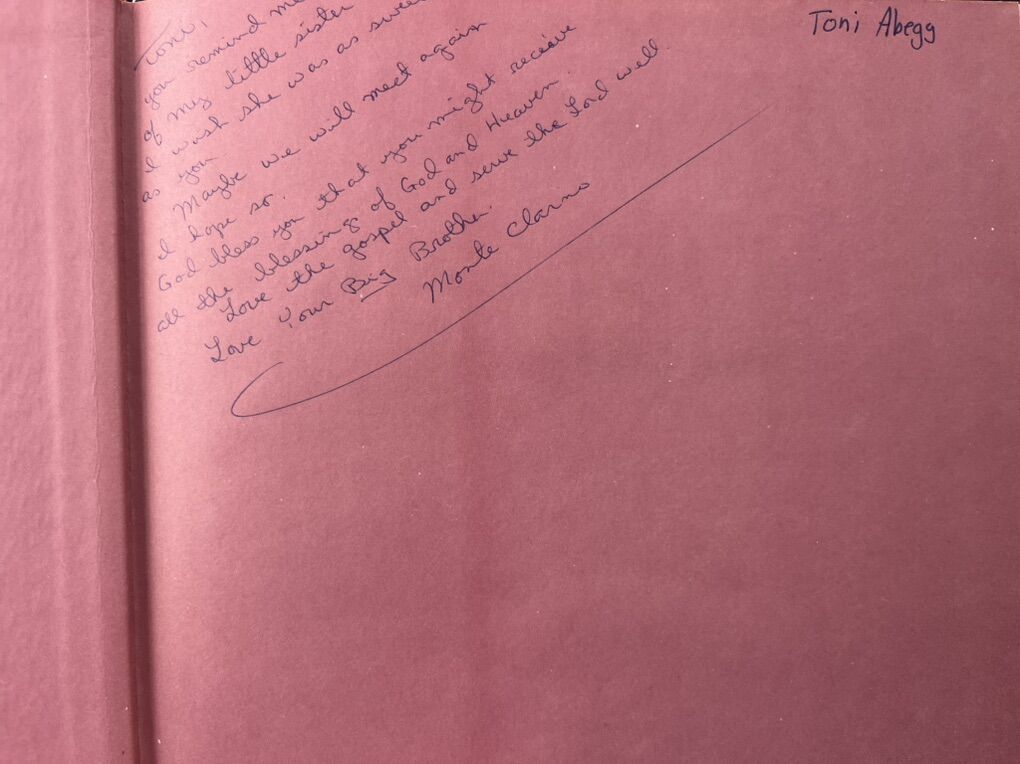 Toni Abegg
Toni,
you remind me
of my little sister
I wish she was as sweet
as you
Maybe we will meet again
I hope so.
God bless you that you might receive
all the blessing of God and Heaven
Love the gospel and serve the Lord well.
Love Your Big Brother.
Monte Clarno